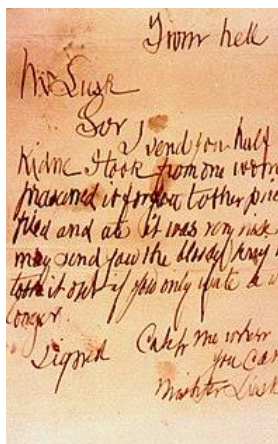 From hell
Mr Lusk
Sor
I send you half
Kidne I took from one wom
prasarved it for you tother pie
fried and ate it was very nise
may send you the bloody knif
took it out if you only wate a w
longer.
signed Catch me when
you can
Mishter Lusk